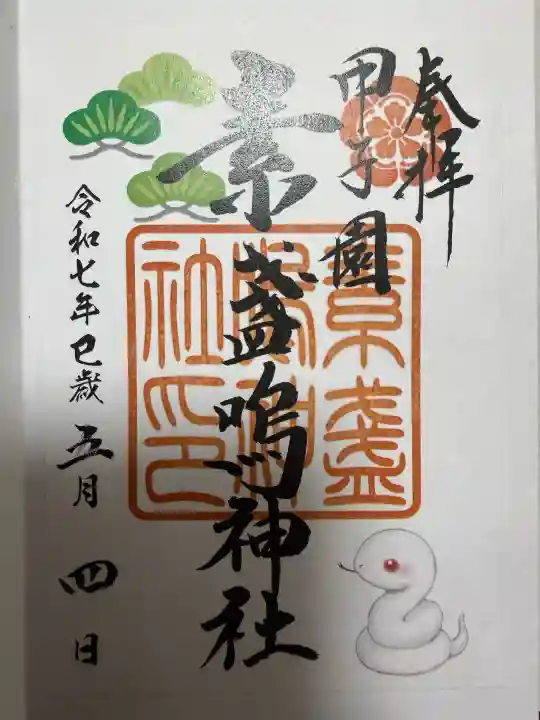 奉拝
甲子園
素盞嗚神社
素盞
嗚神
社印
令和七年巳歳五月四日